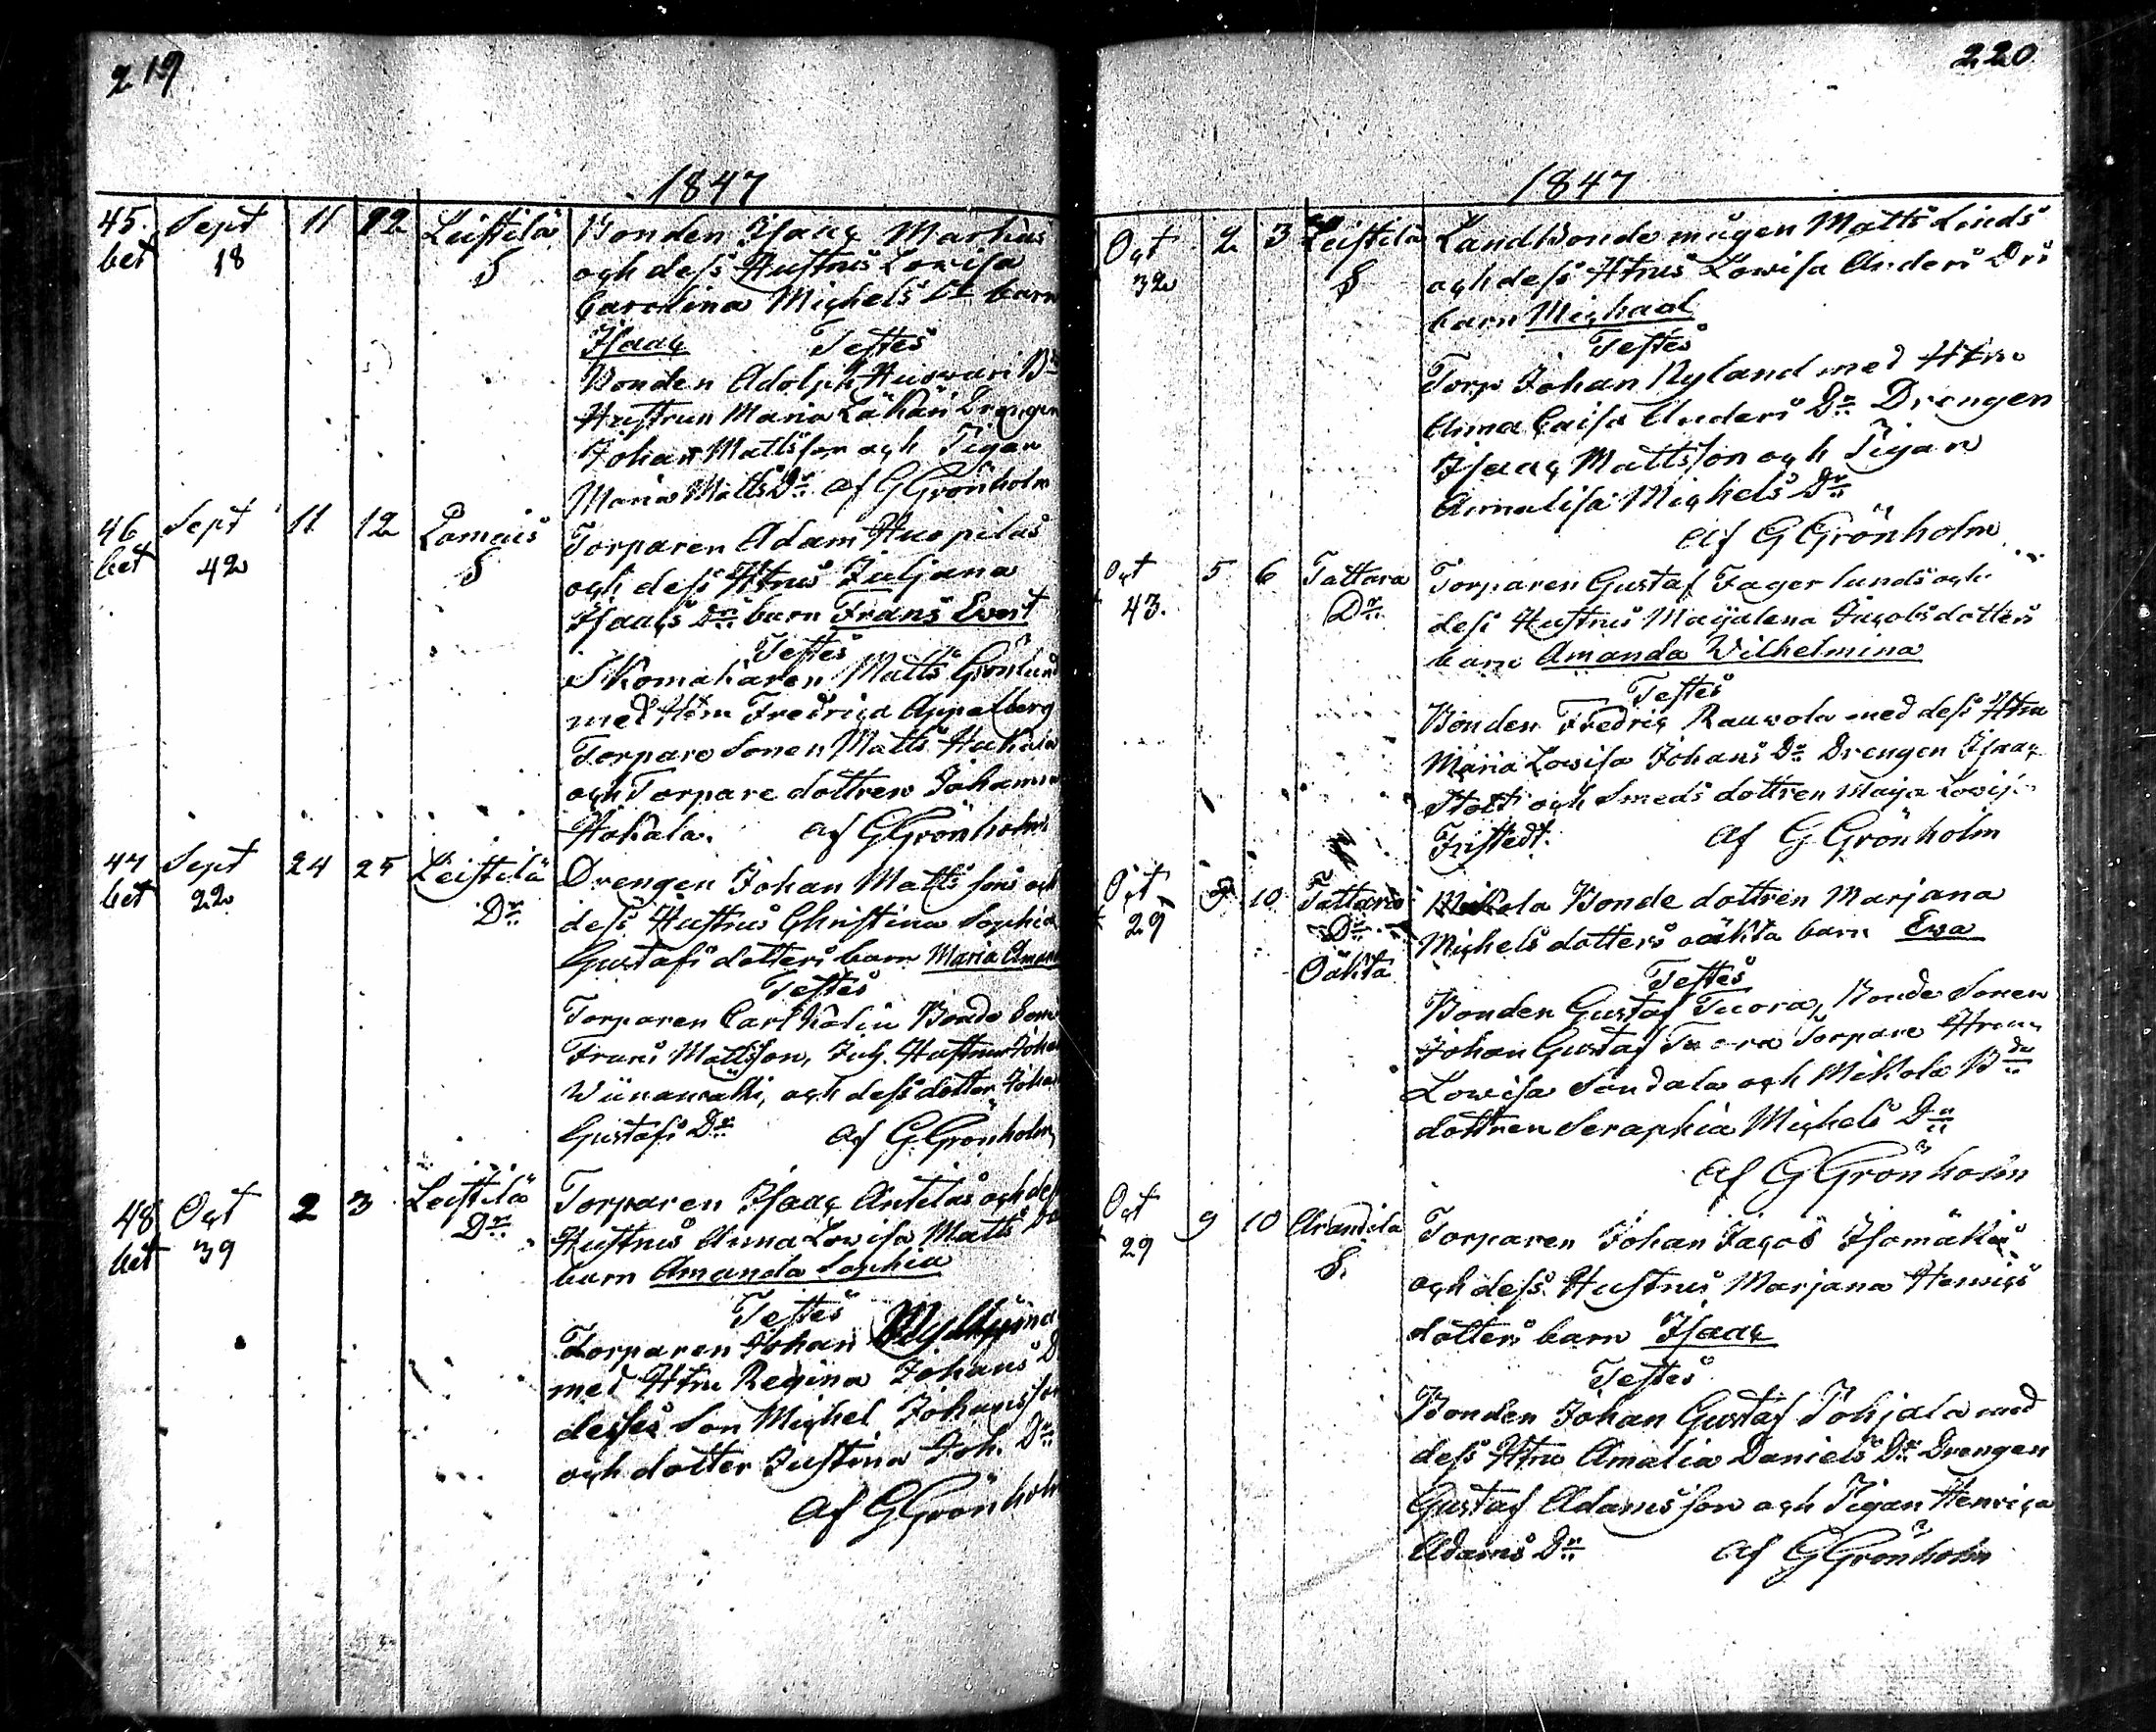 219
1847
45. Sept 11 12 Leistilä Bonden Isaac Markus
bet 18 S och dess Hustrus Lowisa
Carolina Michels Dr barn
Isaac Testes
Bonden Adolph Huswari Bde
Hustrun Maria Läkäri Drengen
Johan Mattsson och Pigan
Maria Matts Dr af G Grönholm
46 Sept 11 12 Lomais Torparen Adam Huopilas
bet 42 S och dess Htrus Juljana
Isaacs Dr barn Frans Evert
Testes
Skomakaren Matts Grönlund
med Htru Fredrica Appelberg
Torpare Sonen Matts Hakala
och Torpare dottren Johanna
Hakala. af G Grönholm
47 Sept 24 25 Leistilä Drengen Johan Mattssons och
bet 22 Dr dess Hustrus Christina Sophia
Gustafs dotters barn Maria Aman
Testes
Torparen Carl Bonde Son
Frans Mattsson, Hustrun Joha
och dess dotter Joha
Gustafs Dr af G Grönholm
48 Oct 2 3 Leistilä Torparen Isaac Antilas och dess
bet 39 Dr Hustrus Anna Lowisa Matts Dr
barn Amanda Sophia
Testes
Torparen Johan
med Htru Regina Johans D
desses Son Michel Johansson
och dotter Justina Joh. Dr
af G Grönholm
220
1847
Oct 2 3 Leistilä Landbonde mågen Matts Linds
32 S och dess Htrus Lowisa Anders Drs
barn Michael
Testes
Torp Johan Nyland med Htru
Anna Caisa Anders Dr Drengen
Isaac Mattsson och Pigan
Annalisa Michels Dr
af G Grönholm
Oct 5 6 Tattara Torparen Gustaf Fagerlunds och
43. Dr dess Hustrus Majalena Jacobsdotters
barn Amanda Wilhelmina
Testes
Bonden Fredric Rauwola med dess Htru
Maria Lowisa Johans Dr Drengen Isaac
Stolt och Smeds dottren Maja Lowis
Fristedt. af G Grönholm
Oct 9 10 Tattara Mikola Bonde dottren Marjana
29 Dr Michels dotters oäkta barn Ewa
Oäkta
Testes
Bonden Gustaf Tuora, Bonde Sonen
Johan Gustaf Tuora Torpare Htrun
Lowisa Sondala och Mikola Bde
dottren Seraphia Michels Dr
af G Grönholm
Oct 9 10 Arantila Torparen Johan Jacob Isomäkis
29 S. och dess Hustrus Marjana Henrics
dotters barn Isaac
Testes
Bonden Johan Gustaf Pohjala med
dess Htru Amalia Daniels Dr Drengen
Gustaf Adamsson och Pigan Henrica
Adams Dr af G Grönholm